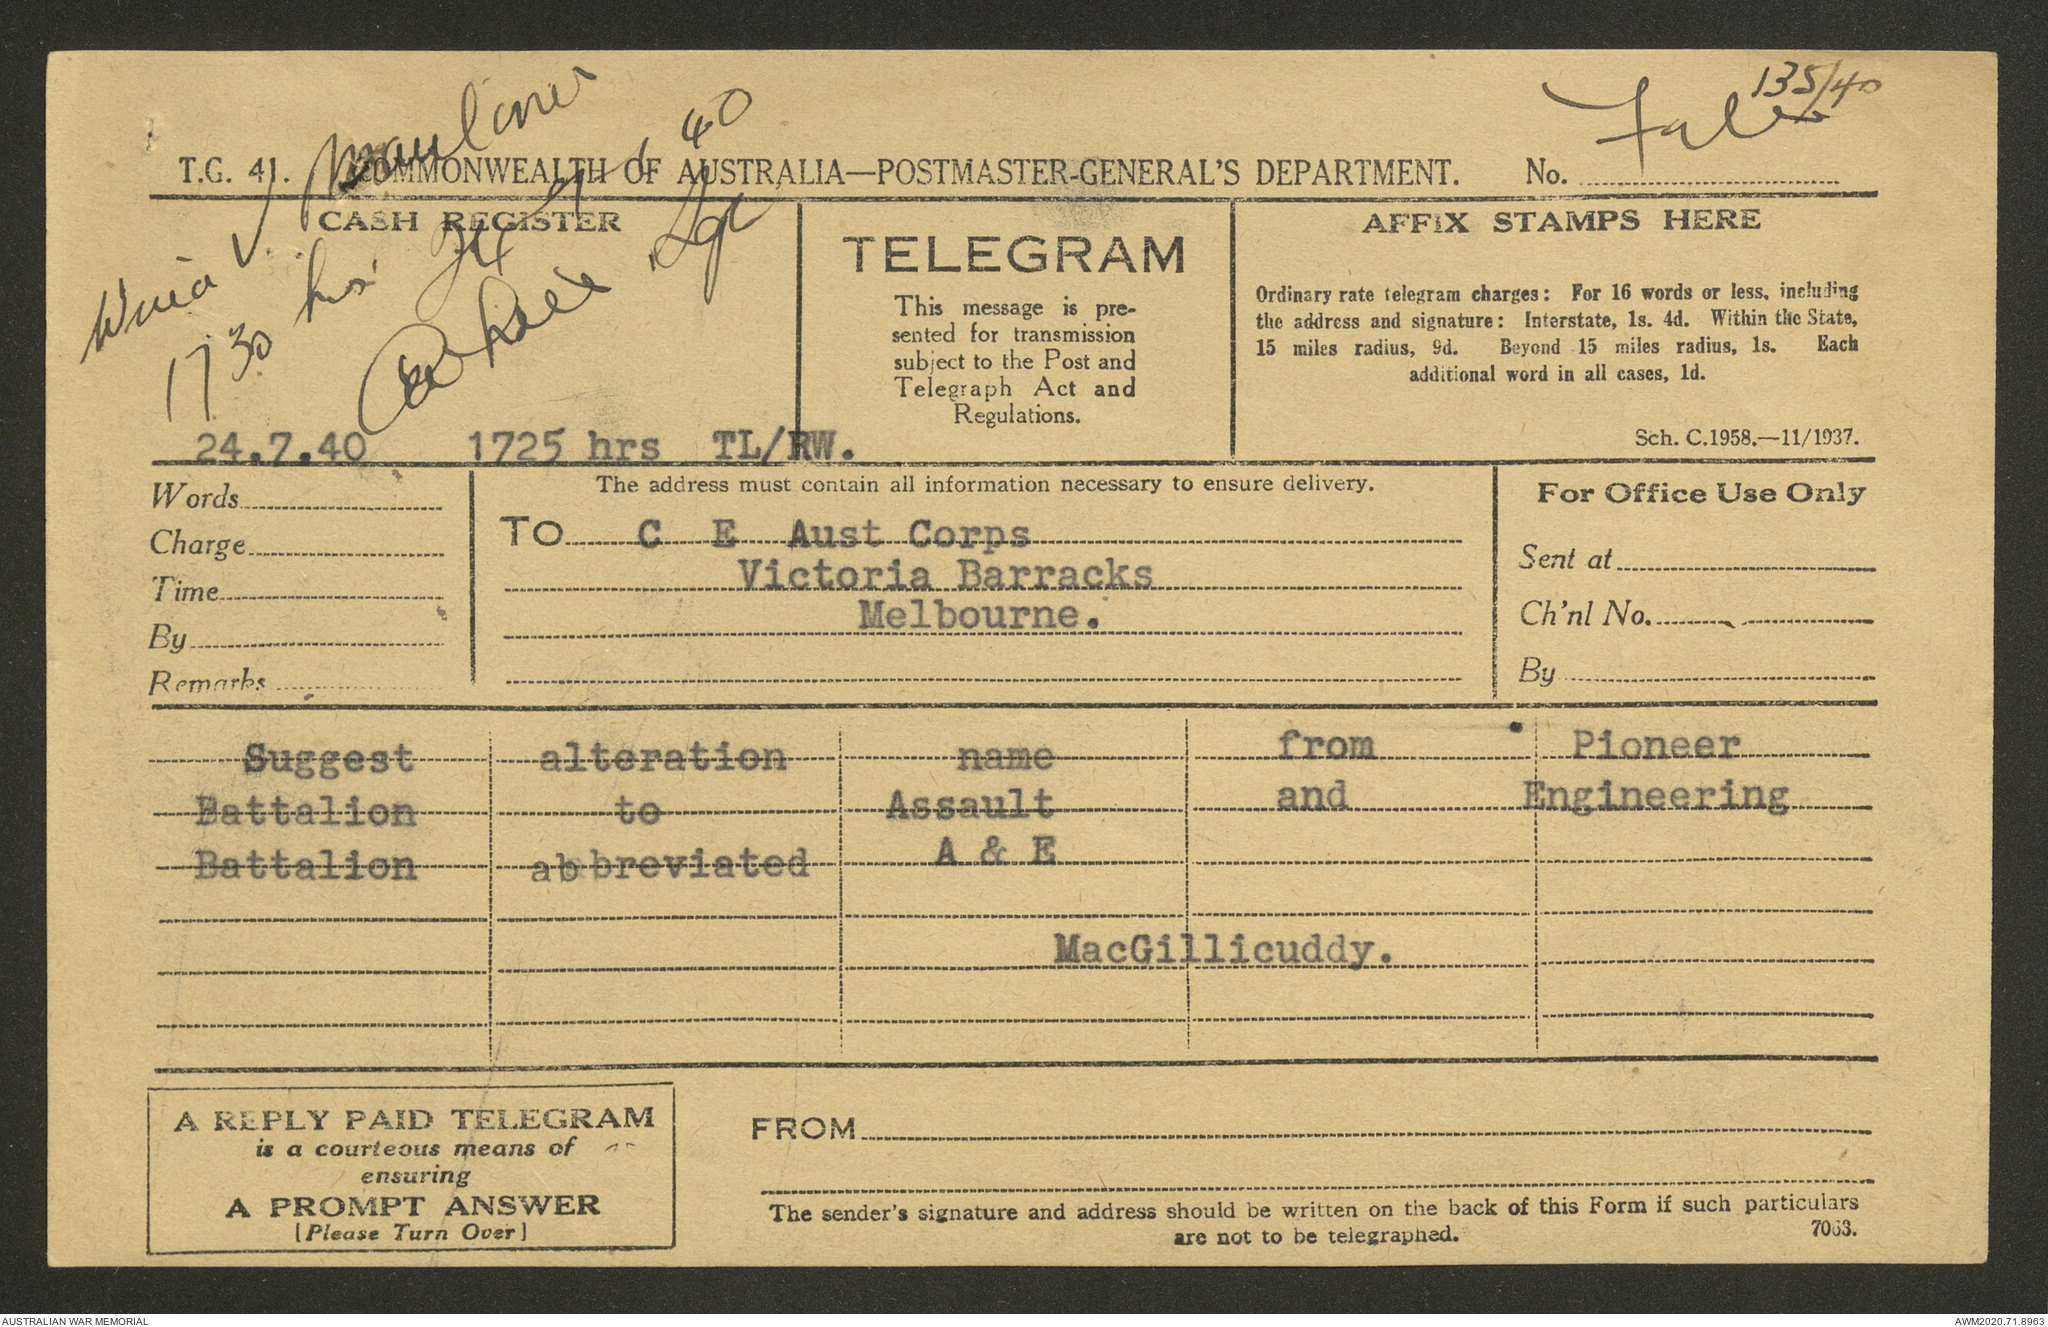 135/40
File
T.G. 41. COMMONWEALTH OF AUSTRALIA—POSTMASTER-GENERAL'S DEPARTMENT. No.
40
1730 hrs 24
CASH REGISTER
TELEGRAM
This message is pre-
sented for transmission
subject to the Post and
Telegraph Act and
Regulations.
AFFIX STAMPS HERE
Ordinary rate telegram charges: For 16 words or less, including
the address and signature: Interstate, 1s. 4d. Within the State,
15 miles radius, 9d. Beyond 15 miles radius, 1s. Each
additional word in all cases, 1d.
Sch. C.1958.—11/1937.
24.7.40 1725 hrs TL/RW.
Words
Charge
Time
By
Remarks
The address must contain all information necessary to ensure delivery.
TO C E Aust Corps
Victoria Barracks
Melbourne.
For Office Use Only
Sent at
Ch'nl No.
By
Suggest alteration name from Pioneer
Battalion to Assault and Engineering
Battalion abbreviated A & E
MacGillicuddy.
A REPLY PAID TELEGRAM
is a courteous means of
ensuring
A PROMPT ANSWER
[Please Turn Over]
FROM
The sender's signature and address should be written on the back of this Form if such particulars
are not to be telegraphed.
7063.
AUSTRALIAN WAR MEMORIAL
AWM2020.71.8963